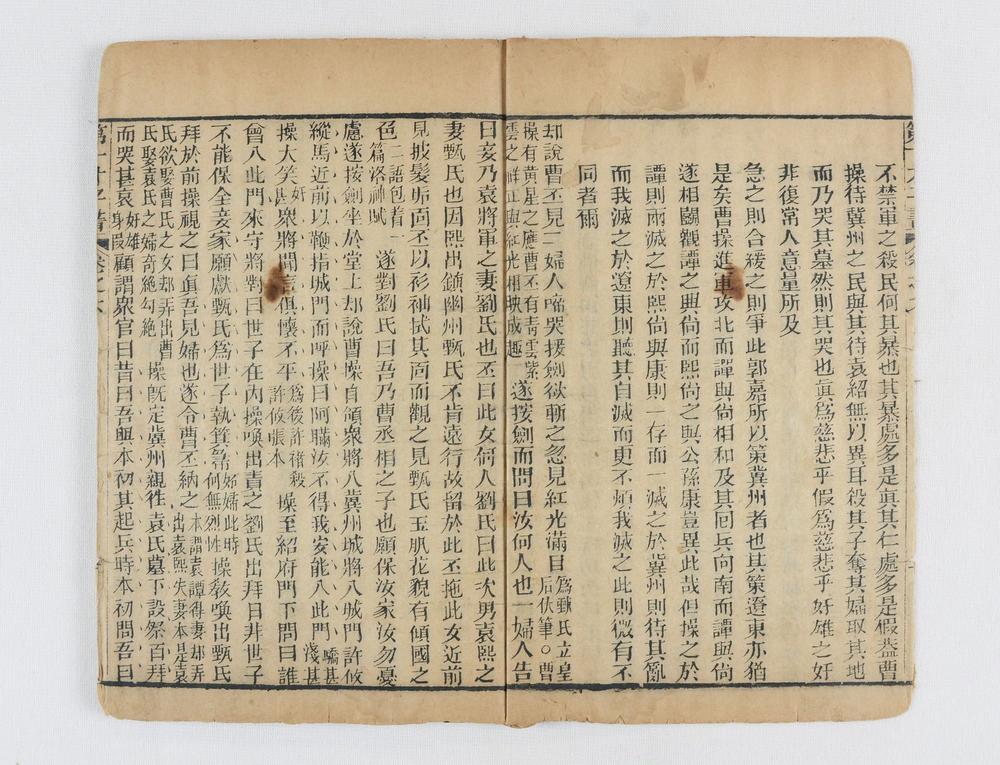 不禁軍之殺民何其暴也其暴處多是真其仁處多是假葢曹
操待冀州之民與其待袁紹無以異耳殺其子奪其婦取其地
而乃哭其墓然則其哭也真為慈悲乎假為慈悲乎奸雄之奸
非復常人意量所及
急之則合緩之則爭此郭嘉所以策冀州者也其策遼東亦猶
是矣曹操進車攻北而譚與尚相和及其囘兵向南而譚與尚
遂相鬭觀譚之與尚而熙尚之與公孫康豈異此哉但操之於
譚則兩滅之於熙尚與康則一存而一滅之於冀州則待其亂
而我滅之於遼東則聽其自滅而更不煩我滅之此則微有不
同者爾
却說曹丕見二婦人啼哭㧞劍欲斬之忽見紅光滿目為甄氏立皇后伏筆○曹
操有黃星之應曹丕有靑雲紫雲之祥正與紅光相映成趣遂按劍而問曰汝何人也一婦人告
曰妾乃袁將軍之妻劉氏也丕曰此女何人劉氏曰此次男袁熙之
妻甄氏也因熙出鎮幽州甄氏不肯遠行故留於此丕拖此女近前
見披髮垢面丕以衫袖拭其面而觀之見甄氏玉肌花貌有傾國之
色二語包着一篇洛神賦遂對劉氏曰吾乃曹丞相之子也願保汝家汝勿憂
慮遂按劍坐於堂上却說曹操自領衆將入冀州城將入城門許攸
縱馬近前以鞭指城門而呼操曰阿瞞汝不得我安能入此門驕甚淺甚
操大笑奸甚衆將聞言俱懷不平為後許褚殺許攸張本操至紹府門下問曰誰
曾入此門來守將對曰世子在內操喚出責之劉氏出拜曰非世子
不能保全妾家願獻甄氏為世子執箕箒妬婦此時何無烈性操敎喚出甄氏
拜於前操視之曰真吾兒婦也遂令曹丕納之本謂袁譚得妻却弄出袁熙失妻本是袁
氏欲娶曹氏之女却弄出曹氏娶袁氏之婦奇絶幻絶操既定冀州親往袁氏墓下設祭再拜
而哭甚哀奸雄身叚顧謂衆官曰昔日吾與本初共起兵時本初問吾曰
第一才子書
卷之六